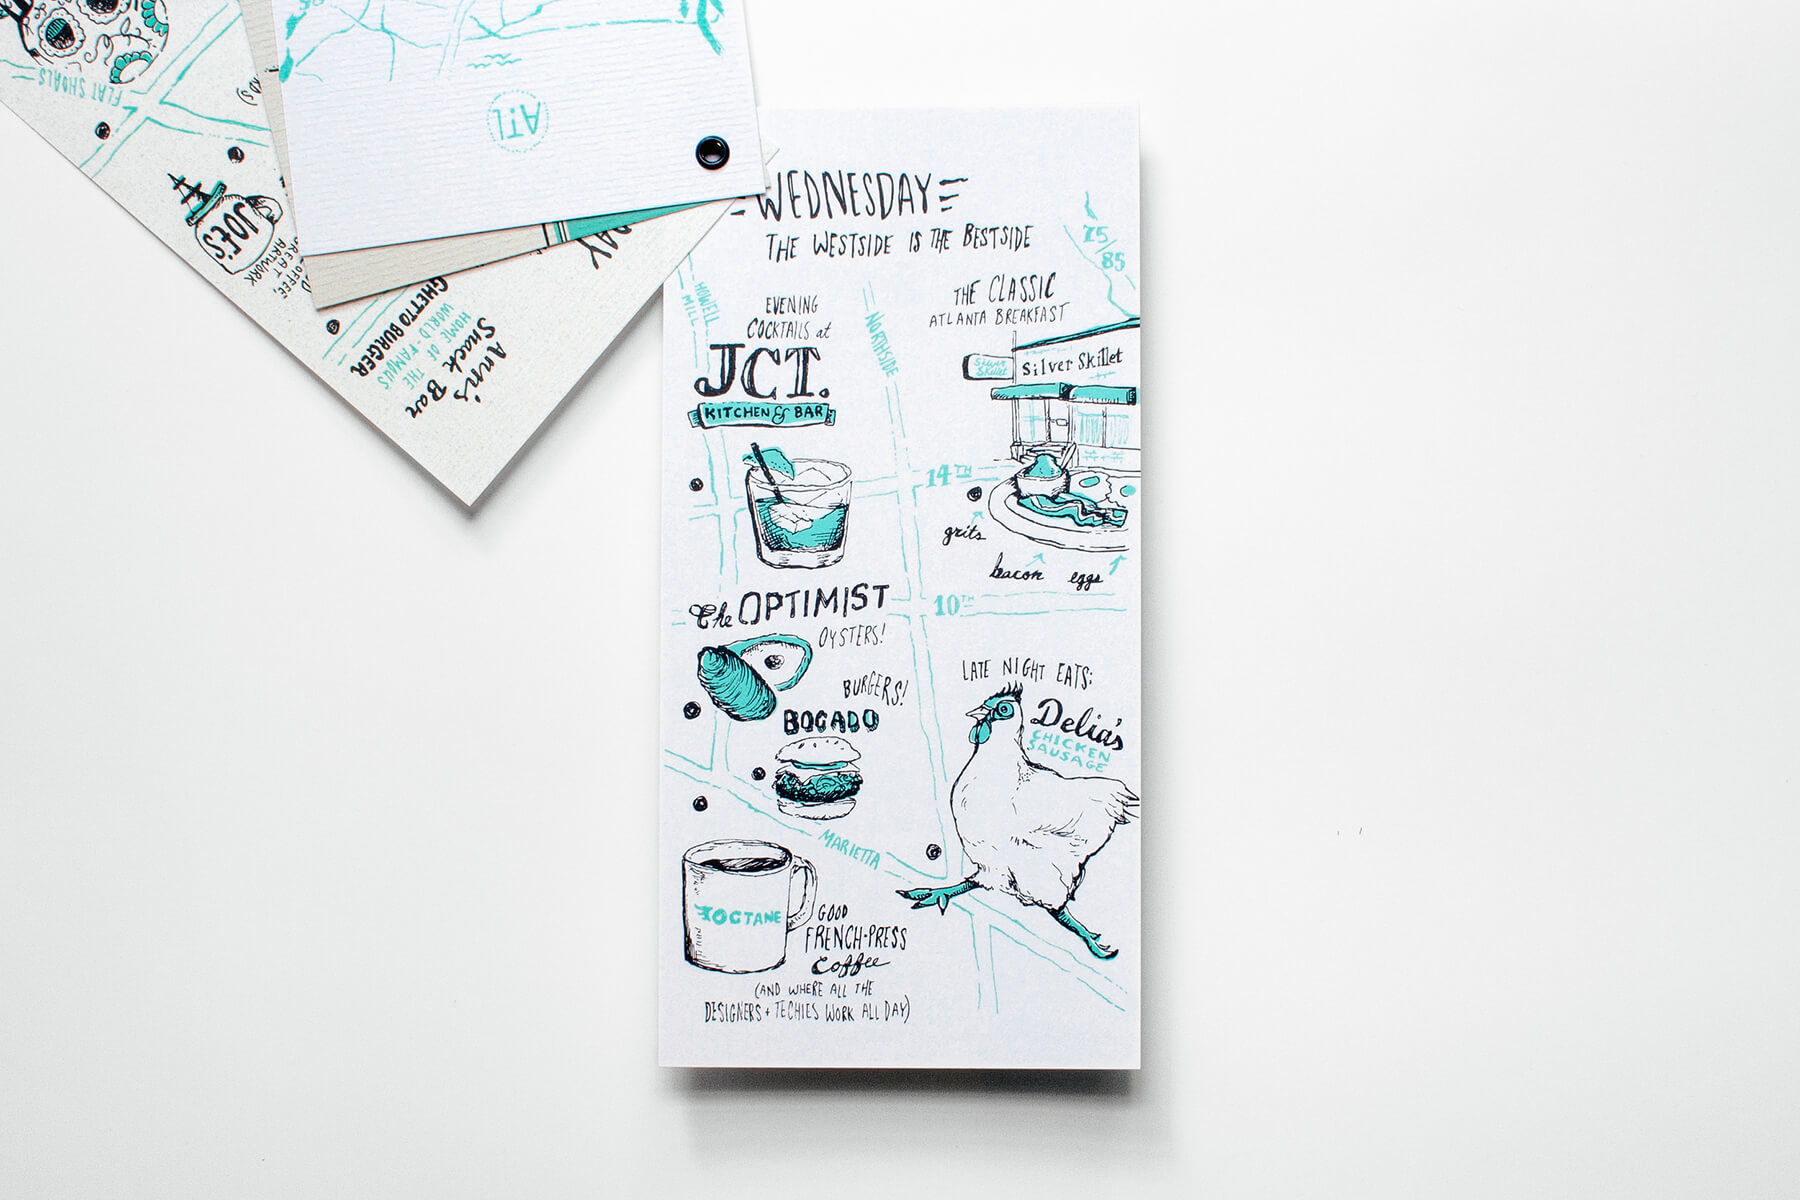 WEDNESDAY
THE WESTSIDE IS THE BESTSIDE
75/85
HOWELL
MILL
NORTHSIDE
EVENING
COCKTAILS at
JCT.
KITCHEN & BAR
THE CLASSIC
ATLANTA BREAKFAST
Silver
Skillet
Silver Skillet
14TH
grits
bacon
eggs
10TH
The OPTIMIST
OYSTERS!
BURGERS!
BOCADO
LATE NIGHT EATS:
Delia's
CHICKEN
SAUSAGE
MARIETTA
OCTANE
GOOD
FRENCH-PRESS
Coffee
(AND WHERE ALL THE
DESIGNERS + TECHIES WORK ALL DAY)
ATL
FLAT SHOALS
JOE'S
COFFEE,
GREAT
ARTWORK
Ann's
Snack Bar
HOME OF THE
WORLD-FAMOUS
GHETTO BURGER
DAY